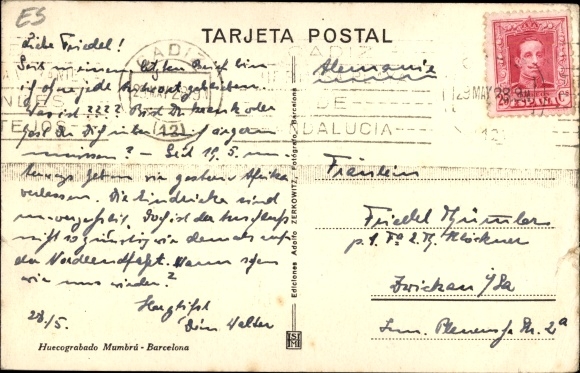 ES
TARJETA POSTAL
Liebe Friedel!
Seit meinem letzten Brief bin
ich ohne jede Antwort geblieben.
Was ist ???? Bist Du krank oder
hast Du Dich über mich ärgern
müssen? – Seit 19.5. un-
terwegs haben wir gestern Afrika
verlassen. Die Eindrücke sind
unvergeßlich. Doch ist der
nicht so günstig wie damals auf
der Nordlandfahrt. Wann sehen
wir uns wieder?
Herzlichst
28/5. Dein Walter
Huecograbado Mumbrú - Barcelona
Ediciones Adolfo ZERKOWITZ, Fotógrafo, Barcelona
CADIZ
DE
ANDALUCIA
29 MAY 28
Alemania
Fräulein
Friedel
p. A. Fa. Klöckner
Zwickau i/Sa
Plauensche Str. 2a